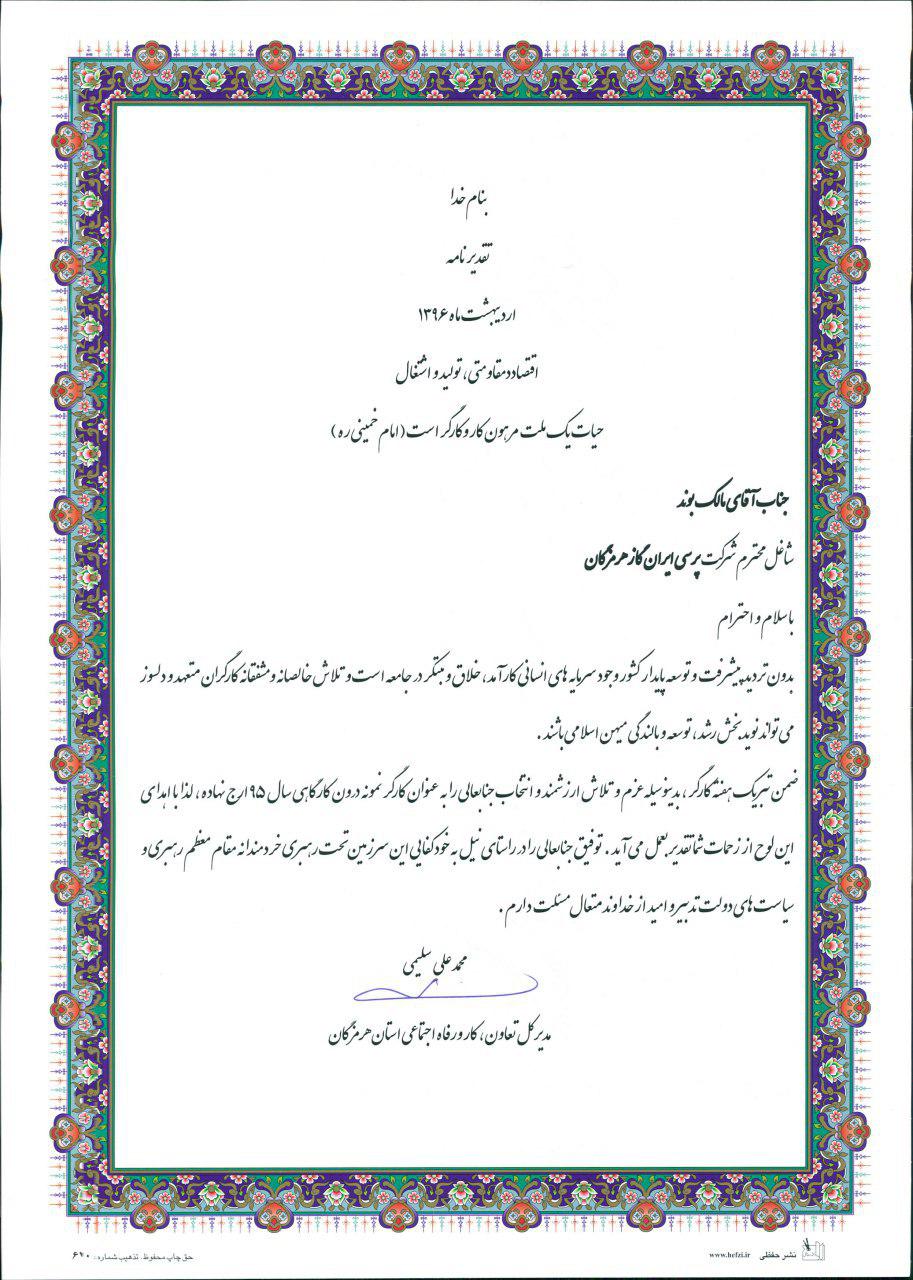 بنام خدا
تقدیر نامه
اردیبهشت ماه ۱۳۹۶
اقتصاد مقاومتی، تولید و اشتغال
حیات یک ملت مرهون کار و کارگر است (امام خمینی ره)
جناب آقای مالک بوند
شاغل محترم شرکت پرسی ایران گاز هرمزگان
با سلام و احترام
بدون تردید پیشرفت و توسعه پایدار کشور وجود سرمایه های انسانی کارآمد، خلاق و مبتکر در جامعه است و تلاش خالصانه و مشفقانه کارگران متعهد و دلسوز
می تواند نوید بخش رشد، توسعه و بالندگی میهن اسلامی باشند.
ضمن تبریک هفته کارگر، بدینوسیله عزم و تلاش ارزشمند و انتخاب جنابعالی را به عنوان کارگر نمونه درون کارگاهی سال ۹۵ ارج نهاده، لذا با اهدای
این لوح از زحمات شما تقدیر بعمل می آید. توفیق جنابعالی را در راستای نیل به خودکفایی این سرزمین تحت رهبری خردمندانه مقام معظم رهبری و
سیاست های دولت تدبیر و امید از خداوند متعال مسئلت دارم.
محمد علی سلیمی
مدیر کل تعاون، کار و رفاه اجتماعی استان هرمزگان
نشر حفظی www.hefzi.ir
حق چاپ محفوظ. تذهیب شماره: ۶۲۰